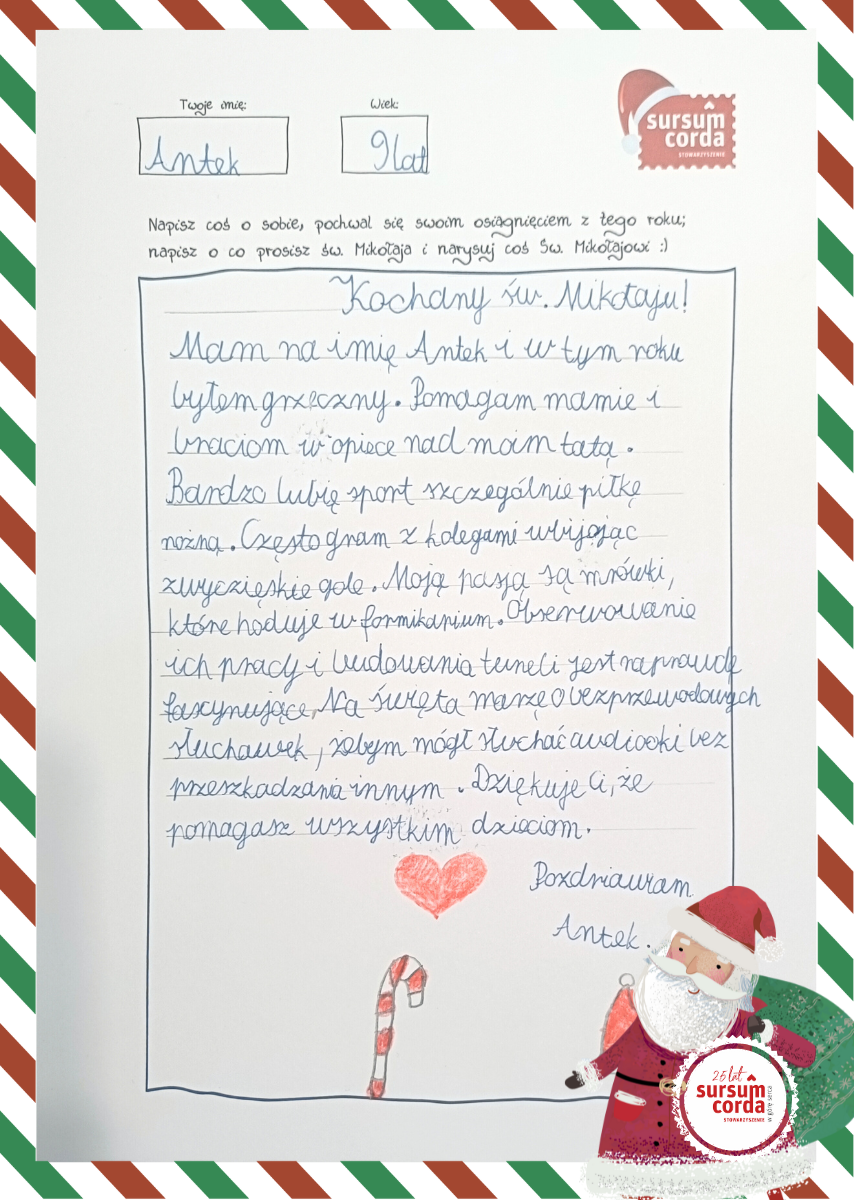 Twoje imię: Wiek:
Antek 9 lat
sursum
corda
STOWARZYSZENIE
Napisz coś o sobie, pochwal się swoim osiągnięciem z tego roku;
napisz o co prosisz św. Mikołaja i narysuj coś Św. Mikołajowi :)
Kochany św. Mikołaju!
Mam na imię Antek i w tym roku
byłem grzeczny. Pomagam mamie i
braciom w opiece nad mam tatą.
Bardzo lubię sport szczególnie piłkę
nożną. Często gram z kolegami wbijając
zwyczięskie gole. Moją pasją są mrówki,
które hoduje w formikarium. Obserwowanie
ich pracy i budowania tuneli jest naprawdę
fascynujące. Na święta marzę o bezprzewodowych
słuchawek, żebym mógł słuchać audiooki bez
przeszkadzania innym. Dziękuje Ci, że
pomagasz wszystkim dzieciom.
Pozdriawram
Antek.
25 lat
sursum
corda
STOWARZYSZENIE
w górę serca